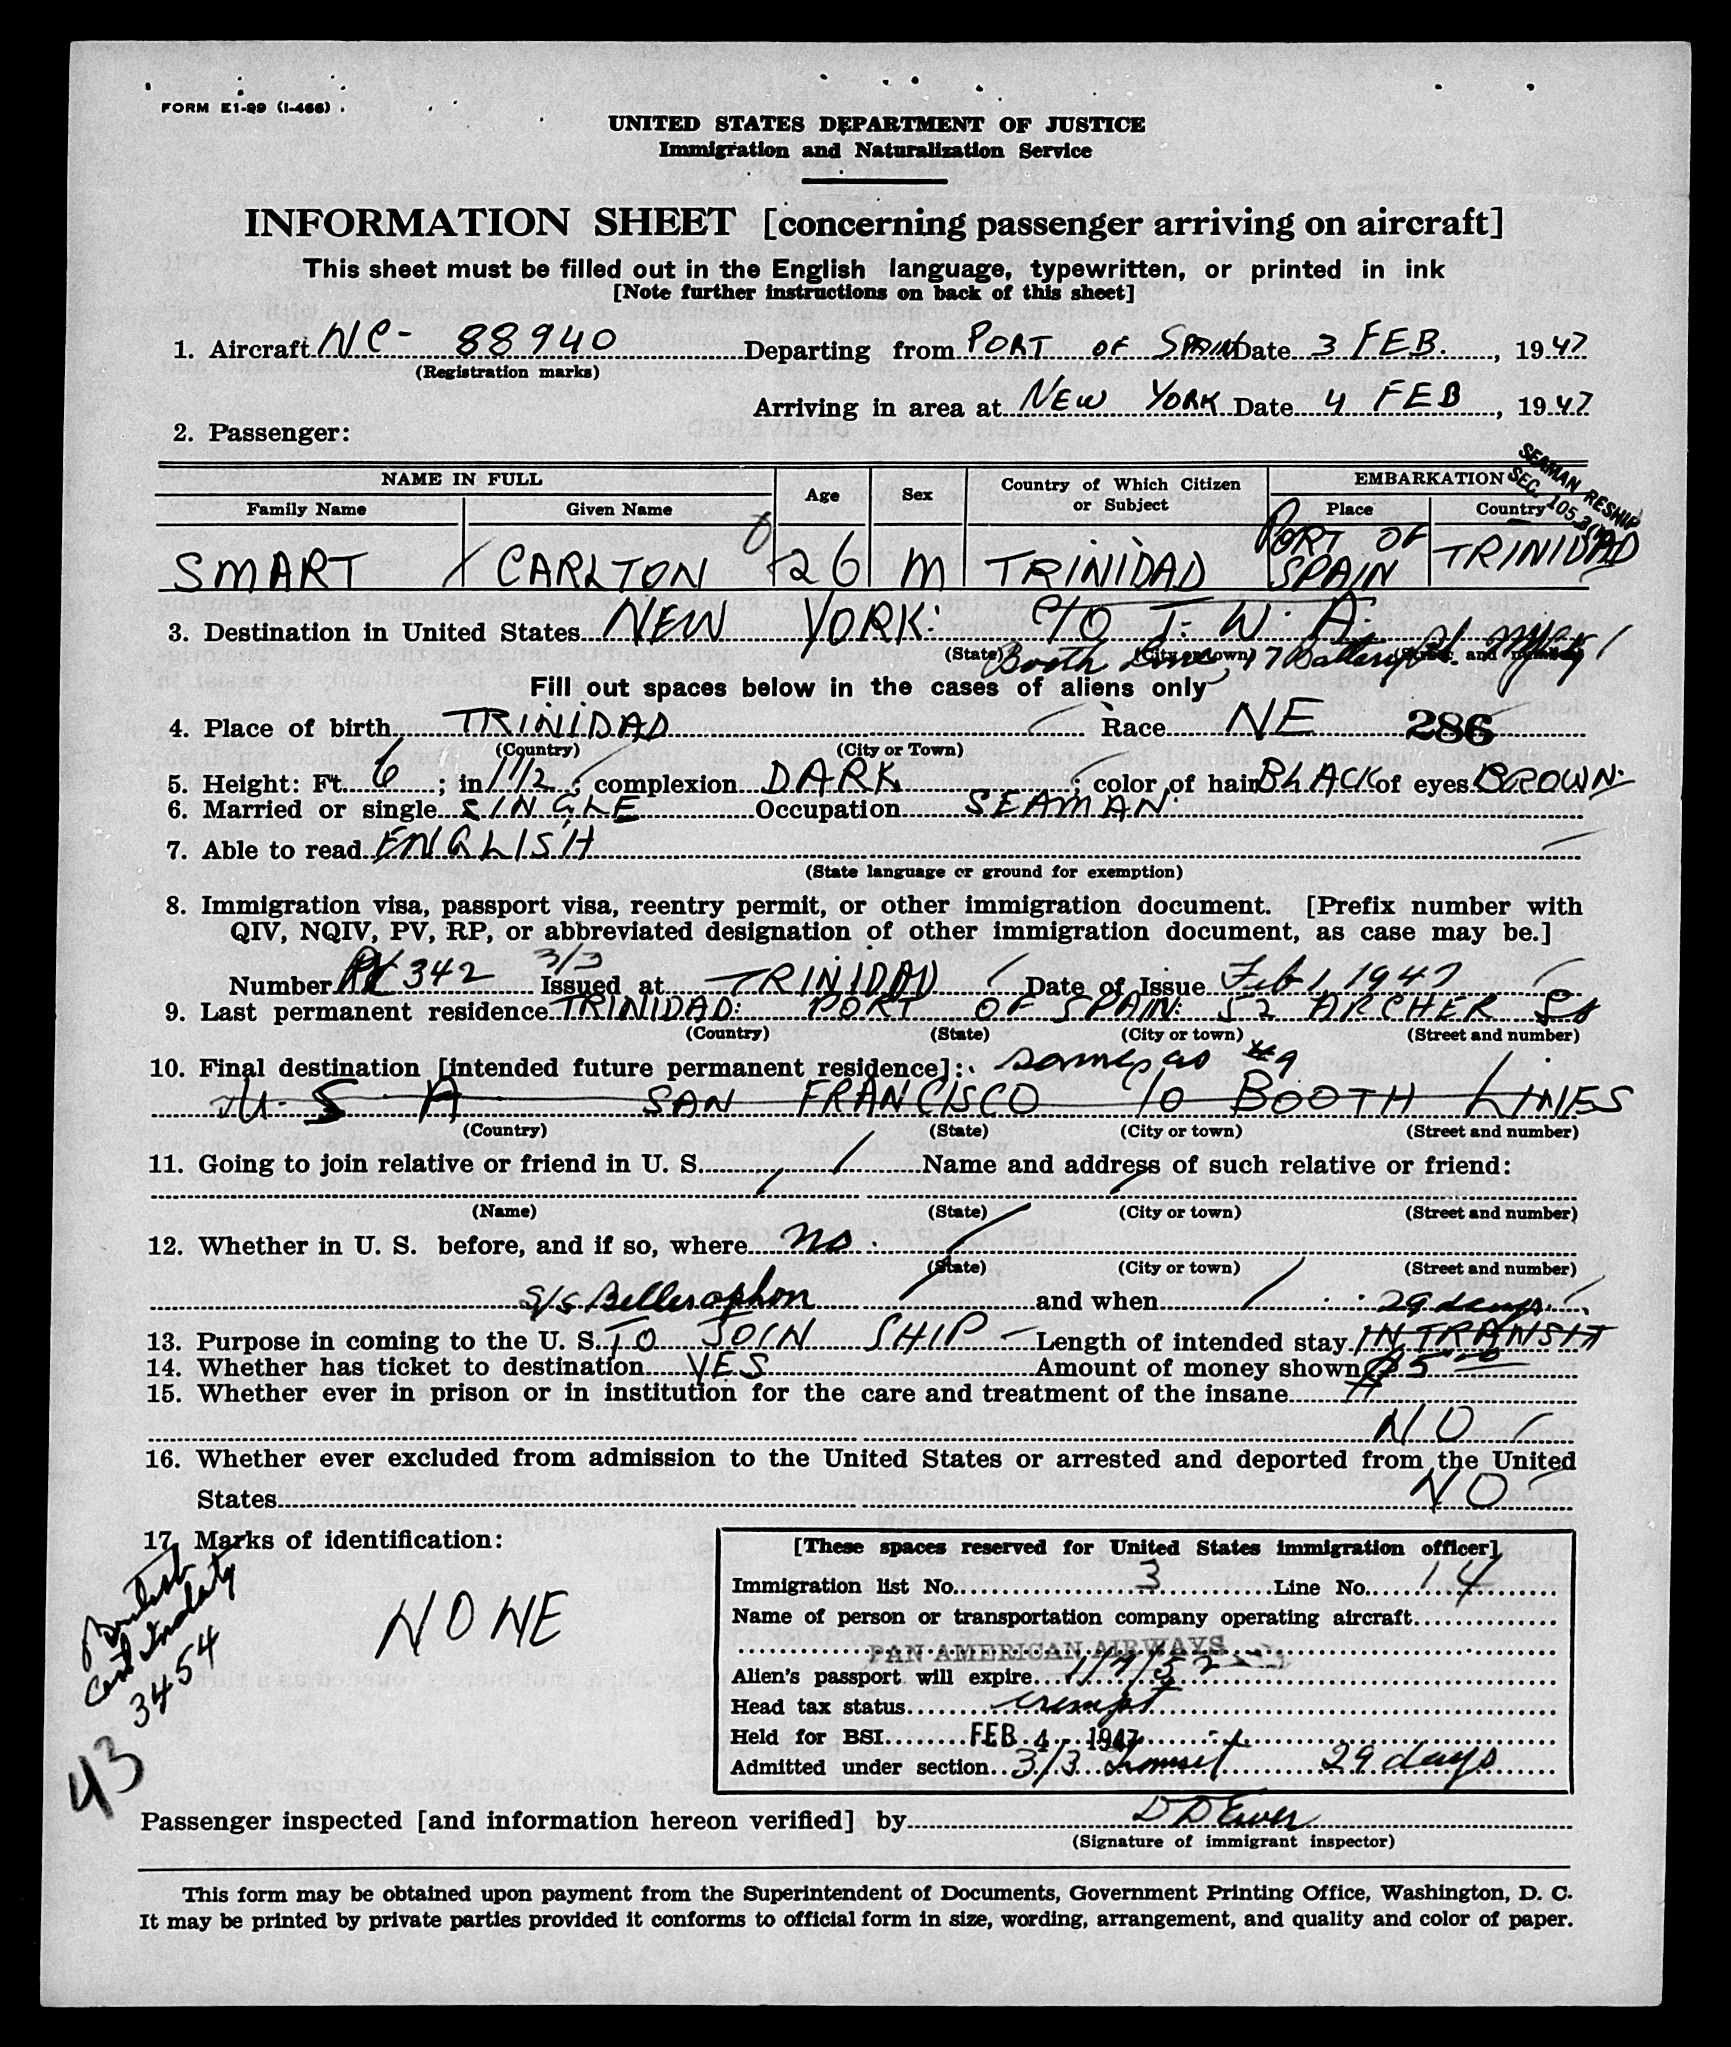 FORM E1-99 (I-466)
UNITED STATES DEPARTMENT OF JUSTICE
Immigration and Naturalization Service
INFORMATION SHEET [concerning passenger arriving on aircraft]
This sheet must be filled out in the English language, typewritten, or printed in ink
[Note further instructions on back of this sheet]
1. Aircraft NC- 88940 Departing from PORT OF SPAIN Date 3 FEB., 1947
(Registration marks)
Arriving in area at NEW YORK Date 4 FEB, 1947
2. Passenger:
NAME IN FULL Age Sex Country of Which Citizen or Subject EMBARKATION
Family Name Given Name Place Country
SEAMAN RESHIP
SEC. 105.3
SMART CARLTON 26 M TRINIDAD PORT OF SPAIN TRINIDAD
3. Destination in United States NEW YORK: C/O T. W. A.
(State) (City or town) (Street and number)
Booth Line, 17 Battery Pl.
Fill out spaces below in the cases of aliens only
4. Place of birth TRINIDAD Race NE 286
(Country) (City or Town)
5. Height: Ft. 6; in 1 1/2; complexion DARK; color of hair BLACK of eyes BROWN
6. Married or single SINGLE Occupation SEAMAN
7. Able to read ENGLISH
(State language or ground for exemption)
8. Immigration visa, passport visa, reentry permit, or other immigration document. [Prefix number with
QIV, NQIV, PV, RP, or abbreviated designation of other immigration document, as case may be.]
3/3
Number PV 342 Issued at TRINIDAD Date of Issue Feb 1, 1947
9. Last permanent residence TRINIDAD: PORT OF SPAIN: 52 ARCHER St
(Country) (State) (City or town) (Street and number)
10. Final destination [intended future permanent residence]: Same as #9
U. S. A SAN FRANCISCO C/O BOOTH LINES
(Country) (State) (City or town) (Street and number)
11. Going to join relative or friend in U. S. Name and address of such relative or friend:
(Name) (State) (City or town) (Street and number)
12. Whether in U. S. before, and if so, where no
(State) (City or town) (Street and number)
S/S Bellerophon and when 29 days
13. Purpose in coming to the U. S. TO JOIN SHIP Length of intended stay IN TRANSIT
14. Whether has ticket to destination YES Amount of money shown $5.00
15. Whether ever in prison or in institution for the care and treatment of the insane
NO
16. Whether ever excluded from admission to the United States or arrested and deported from the United
States NO
17. Marks of identification:
NONE
British
Cert
3454
43
[These spaces reserved for United States immigration officer]
Immigration list No. 3 Line No. 14
Name of person or transportation company operating aircraft
PAN AMERICAN AIRWAYS
Alien's passport will expire 1/7/52
Head tax status exempt
Held for BSI FEB 4 - 1947
Admitted under section 3/3 Transit 29 days
Passenger inspected [and information hereon verified] by
(Signature of immigrant inspector)
This form may be obtained upon payment from the Superintendent of Documents, Government Printing Office, Washington, D. C.
It may be printed by private parties provided it conforms to official form in size, wording, arrangement, and quality and color of paper.